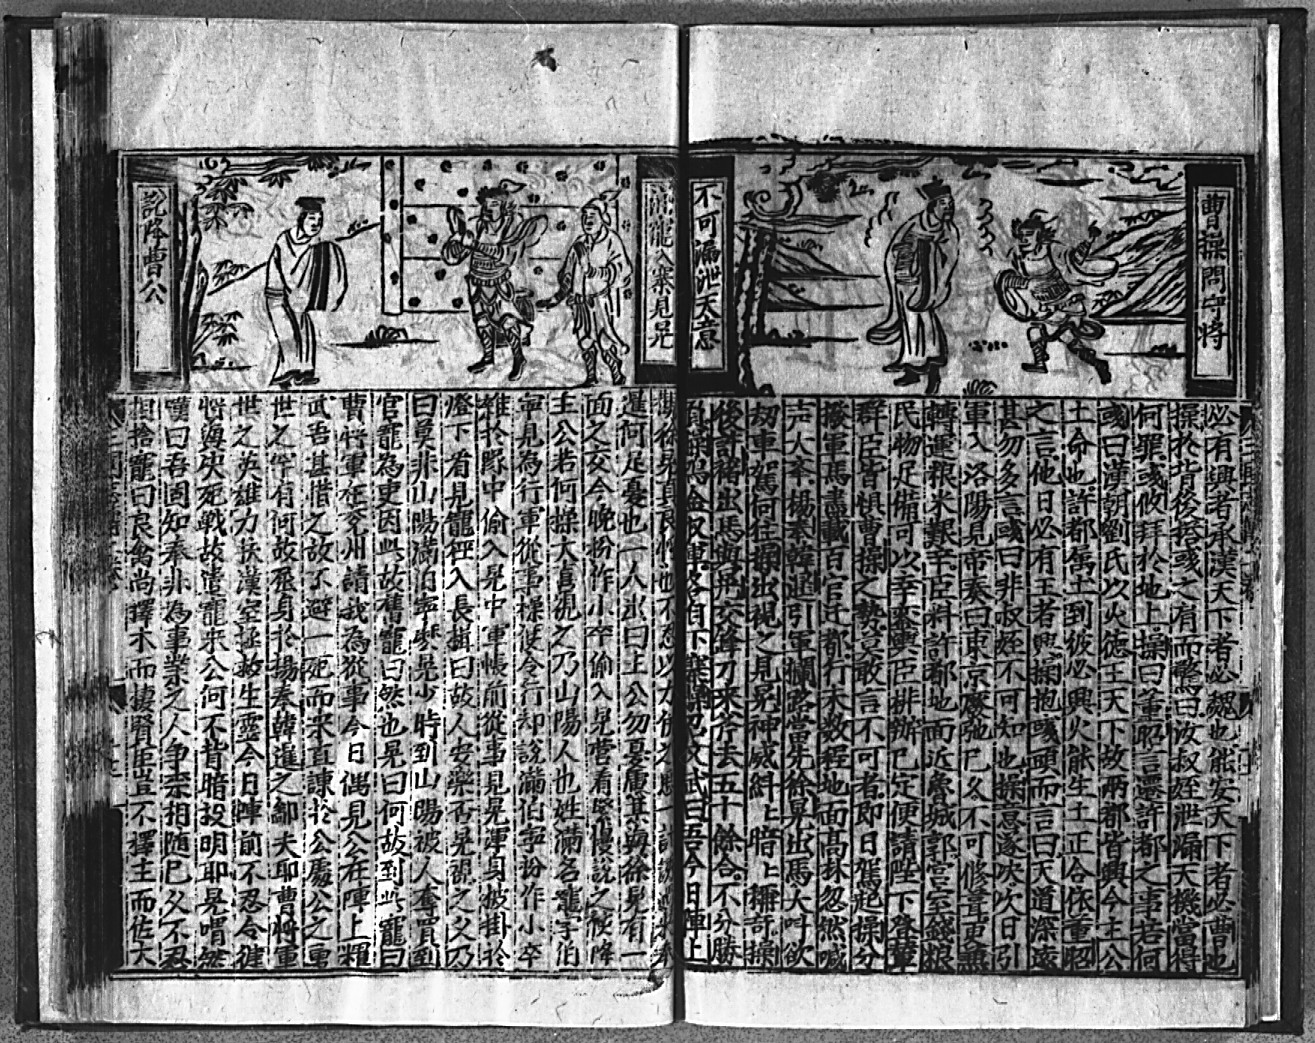 曹操問守將
不可漏泄天意
必有興者承漢天下者必魏也能安天下者必曹也
操於背後搭彧之肩而驚曰汝叔姪泄漏天機當得
何罪彧攸拜於地上操曰董昭言還許都之事若何
彧曰漢朝劉氏以火德王天下故兩都皆興今主公
土命也許都屬土到彼必興火能生土正合依董昭
之言他日必有王者興操抱彧頭而言曰天道深遠
甚勿多言彧曰非叔姪不可知也操意遂決次日引
軍入洛陽見帝奏曰東京廢弛已久不可修葺更無
轉運粮米艱辛臣料許都地面近魯城郭宮室錢粮
民物足備可以幸鑾輿臣排辦已定便請陛下登輦
群臣皆惧曹操之勢莫敢言不可者即日駕起操分
撥軍馬盡載百官迁都行未数程地面高林忽然喊
声大奉楊奉韓暹引軍攔路當先徐晃出馬大呌欲
刼車駕何往操出視之見晃神威糾上暗上稱奇操
後許褚出馬與晃交鋒刀來斧去五十餘合不分勝
負操鳴金収軍各自下寨請召文武曰吾今日陣上
滿寵入寨見晃
說降曹公
暹何足憂也一人出曰主公勿憂慮某與徐晃有一
面之交今晚扮作小卒偷入晃營看緊慢說之彼降
主公若何操大喜視之乃山陽人也姓滿名寵字伯
寧見為行軍從事操使令行却說滿伯寧扮作小卒
雜於隊中偷入晃中軍帳前從事見晃渾身披掛於
燈下看見寵徑入長揖曰故人安樂否晃視之父乃
曰莫非山陽滿伯寧邪晃少時到山陽被人奪買到
官寵為吏因此故舊寵曰然也晃曰何故到此寵曰
曹將軍在兗州請我為從事今日偶見公在陣上耀
武吾甚惜之故不避一死而來直諫於公處公之勇
世之罕有何故屈身於楊奉韓暹之鄙夫耶曹將軍
世之英雄力扶漢室拯救生靈今日陣前不忍令健
將與决死戰故遣寵來公何不背暗投明耶晃喟然
嘆曰吾固知奉非為事業之人争奈相随已久不忍
相捨寵曰良禽尚擇木而棲賢臣豈不擇主而佐大